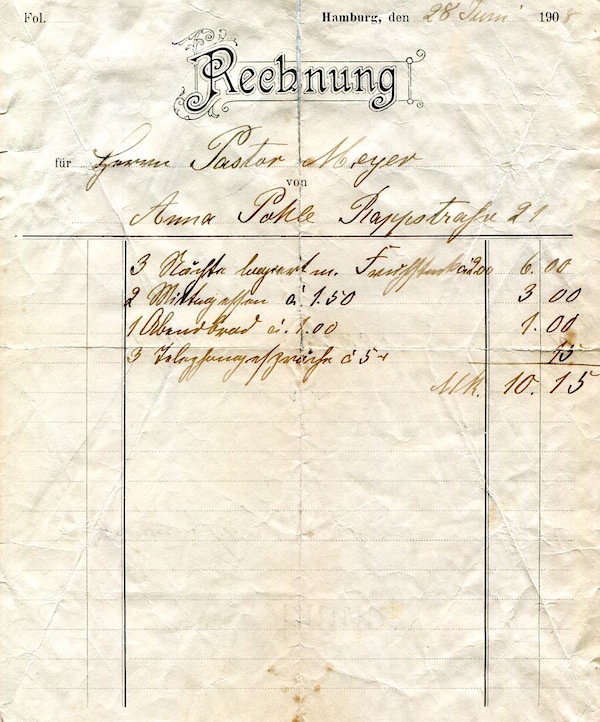 Fol.
Hamburg, den 28 Juni 1908
Rechnung
für Herrn Pastor Meyer
von
Anna Pohle Rappstraße 21
3 Nächte logiert m. Frühstück à 2.00 6.00
2 Mittagessen á 1.50 3 00
1 Abendbrod á. 1.00 1.00
3 Telephongespräche á 5 15
MK. 10.15